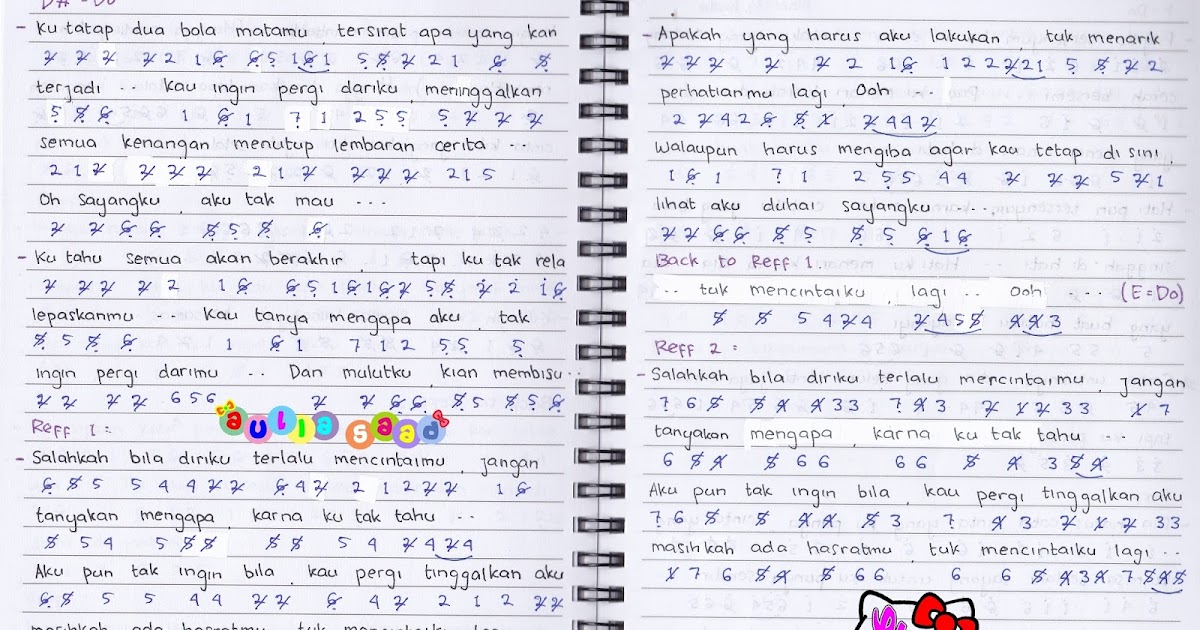 D# = Do
- Ku tatap dua bola matamu, tersirat apa yang kan
2̸ 2̸ 2̸ 2̸ 2 1 6̣ 6̣ 5̣ 1 6̣ 1 5̣ 5̸̣ 2̸ 2 1 6̣ 5̸̣
terjadi ... kau ingin pergi dariku, meninggalkan
5̣ 5̸̣ 6̣ 1 6̣ 1 7̣ 1 2 5̣ 5̣ 5̣ 2̸ 2̸ 2̸
semua kenangan menutup lembaran cerita ...
2 1 2̸ 2̸ 2̸ 2̸ 2 1 2̸ 2̸ 2̸ 2̸ 2 1 5
Oh sayangku, aku tak mau ...
2̸ 2̸ 6̣ 6̣ 5̸̣ 5̣ 5̸̣ 6̣
- Ku tahu semua akan berakhir, tapi ku tak rela
2̸ 2̸ 2̸ 2̸ 2 1 6̣ 6̣ 5̣ 1 6̣ 1 6̣ 2̸ 5̣ 5̸̣ 2̸ 2 1 6̣
lepaskanmu ... kau tanya mengapa aku, tak
5̸̣ 5̣ 5̸̣ 6̣ 1 6̣ 1 7 1 2 5̣ 5̣ 5̣
ingin pergi darimu .. Dan mulutku, kian membisu ..
2̸ 2̸ 2̸ 2̸ 6 5 6 2̸ 2̸ 6̣ 6̣ 5̸̣ 5 5̸̣ 5̣ 6̣
aulia saad
Reff 1 :
- Salahkah bila diriku terlalu mencintaimu, jangan
6̣ 5̸ 5 5 4 4 2̸ 2̸ 6̣ 4 2̸ 2 1 2 2̸ 2̸ 1 6̣
tanyakan mengapa, karna ku tak tahu ..
5̸ 5 4 5 5̸ 5̸ 5̸ 5̸ 5 4 2̸ 4 2̸ 4
Aku pun tak ingin bila, kau pergi tinggalkan aku
6̣ 5̸ 5 5 4 4 2̸ 2̸ 6̣ 4 2̸ 2 1 2 2̸ 2̸
masihkah ada hasratmu tuk mencintaiku lagi
- Apakah yang harus aku lakukan, tuk menarik
2̸ 2̸ 2̸ 2̸ 2̸ 2 1 6̣ 1 2 2 2̸ 2 1 5̣ 5̸̣ 2̸ 2
perhatianmu lagi, Ooh ...
2 2̸ 4 2 6̣ 5̸̣ 1̸ 2̸ 4 4 2̸
Walaupun harus mengiba agar kau tetap di sini
1 6̣ 1 7̣ 1 2 5̣ 5̣ 4 4 2̸ 2̸ 2̸ 5 2̸ 1
lihat aku duhai sayangku ...
2̸ 2̸ 6̣ 6̣ 5̸̣ 5̣ 5̸̣ 5̣ 6̣ 1 6̣
Back to Reff 1.
.. tuk mencintaiku, lagi .. Ooh ... (E=Do)
5̸ 5̸ 5 4 2̸ 4 2̸ 4 5 5̸ 4̸ 4̸ 3
Reff 2 :
- Salahkah bila diriku terlalu mencintaimu jangan
7 6 5̸ 5̸ 4̸ 4̸ 3 3 7 4̸ 3 2̸ 1̸ 2̸ 3 3 1̸ 7
tanyakan mengapa, karna ku tak tahu ..
6 5̸ 4̸ 5̸ 6 6 6 6 5̸ 4̸ 3 5̸ 4̸
Aku pun tak ingin bila, kau pergi tinggalkan aku
7 6 5̸ 5̸ 4̸ 4̸ 5̸ 3 7 4̸ 3 2̸ 1̸ 2̸ 3 3
masihkah ada hasratmu, tuk mencintaiku lagi ..
1̸ 7 6 5̸ 4̸ 5̸ 6 6 6 6 5̸ 4̸ 3 4̸ 7 5̸ 4̸ 5̸